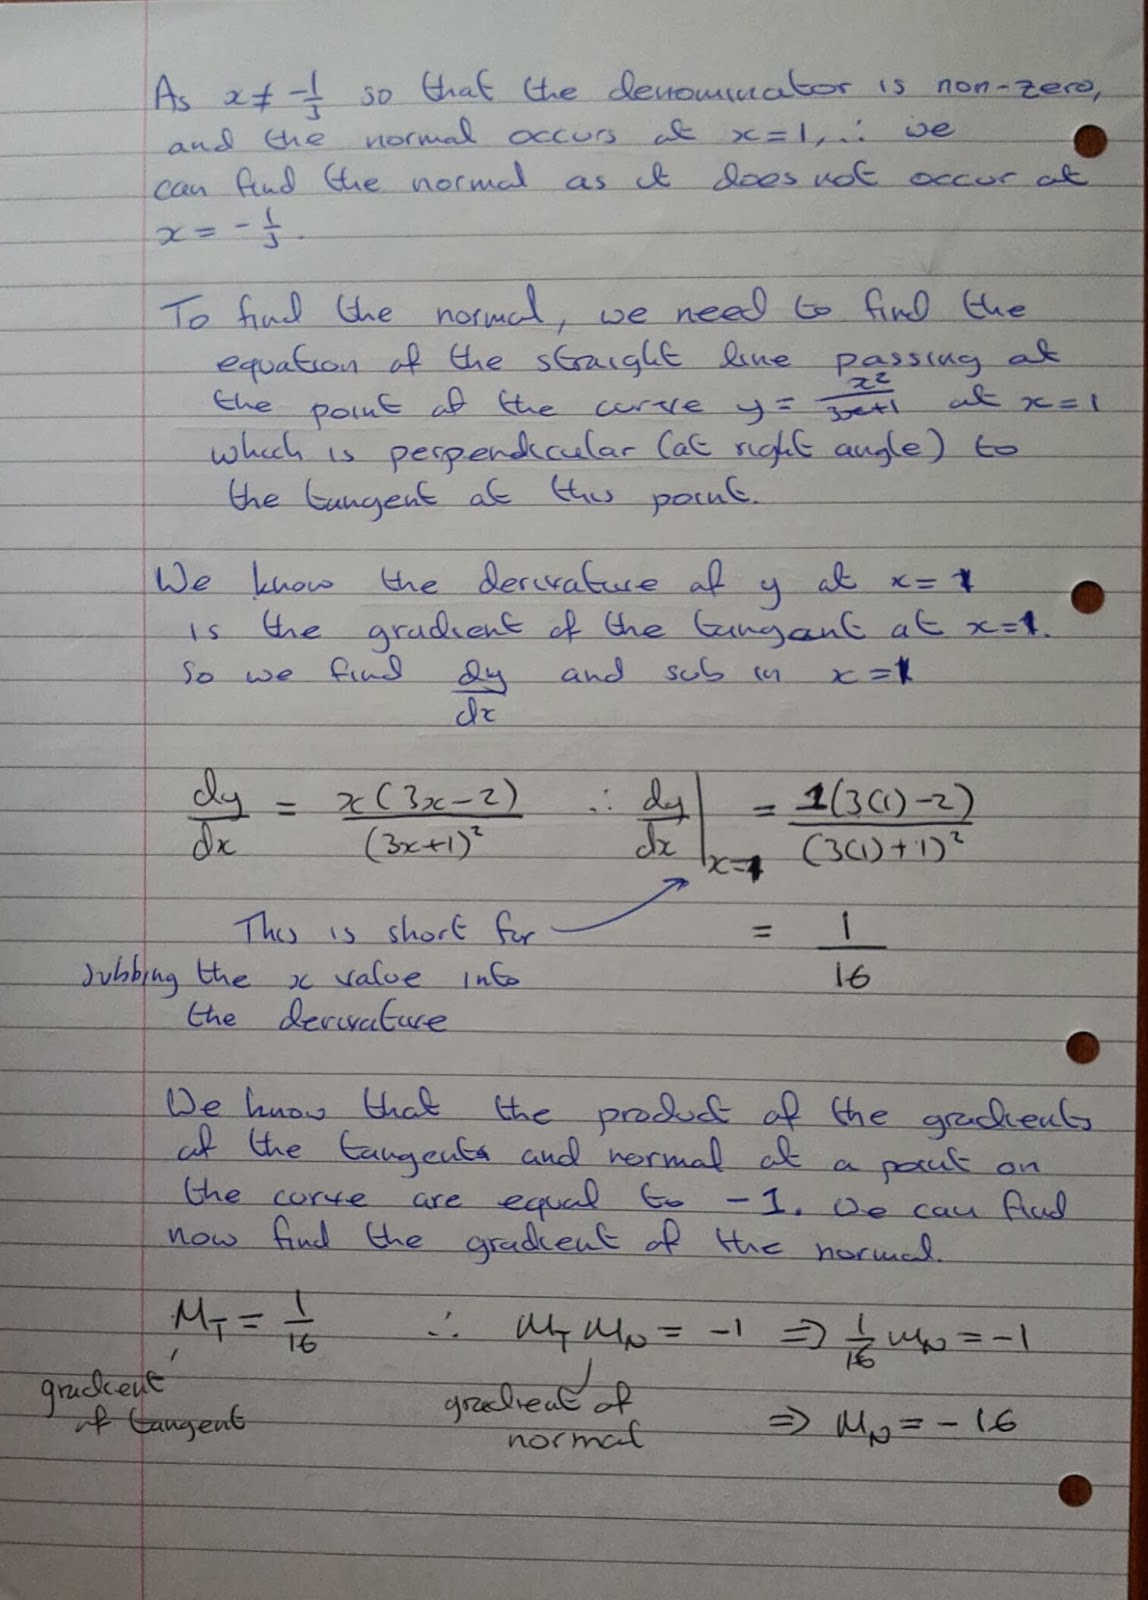 As x ≠ -1/3 so that the denominator is non-zero,
and the normal occurs at x=1, ∴ we
can find the normal as it does not occur at
x = -1/3.
To find the normal, we need to find the
equation of the straight line passing at
the point of the curve y = x²/(3x+1) at x=1
which is perpendicular (at right angle) to
the tangent at this point.
We know the derivative of y at x=1
is the gradient of the tangant at x=1.
So we find dy/dx and sub in x=1
dy/dx = x(3x-2)/(3x+1)² ∴ dy/dx|x=1 = 1(3(1)-2)/(3(1)+1)²
This is short for = 1/16
subbing the x value into
the derivative
We know that the product of the gradients
of the tangents and normal at a point on
the curve are equal to -1. We can find
now find the gradient of the normal.
M_T = 1/16 ∴ M_T M_N = -1 ⇒ 1/16 M_N = -1
gradient of tangent
gradient of normal
⇒ M_N = -16